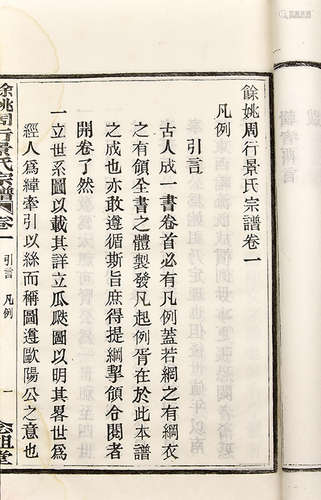 餘姚周行景氏宗譜卷一
凡例
引言
古人成一書卷首必有凡例蓋若網之有綱衣
之有領全書之體製發凡起例胥在於此本譜
之成也亦敢遵循斯旨庶得提綱挈領令閱者
開卷了然
一立世系圖以載其詳立瓜瓞圖以明其畧世爲
經人爲緯牽引以絲而稱圖遵歐陽公之意也
餘姚周行景氏宗譜
卷一
引言 凡例
一